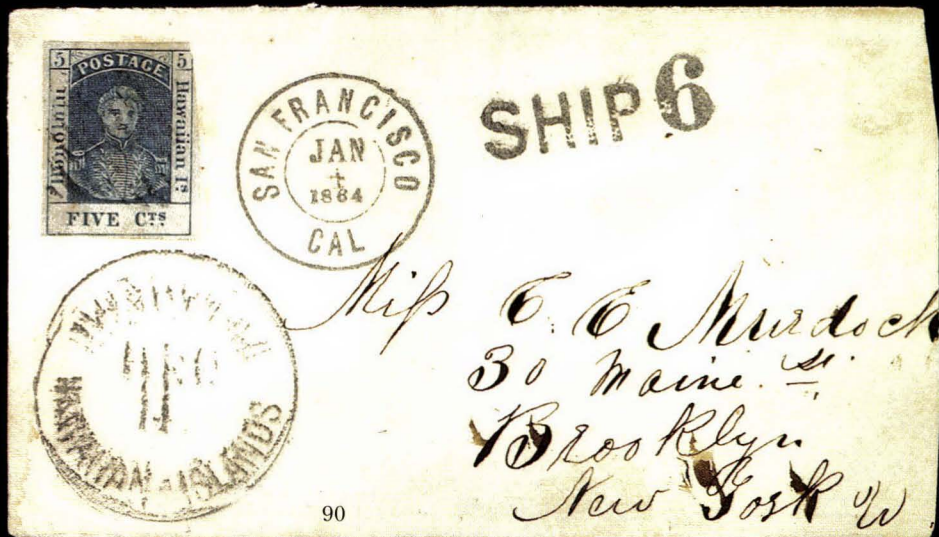 5 POSTAGE 5
Honolulu
Hawaiian Is.
FIVE CTS.
SAN FRANCISCO
JAN
1864
CAL
SHIP 6
HAWAIIAN ISLANDS
Miss C. C. Murdock
30 Maine St.
Brooklyn
New York
90